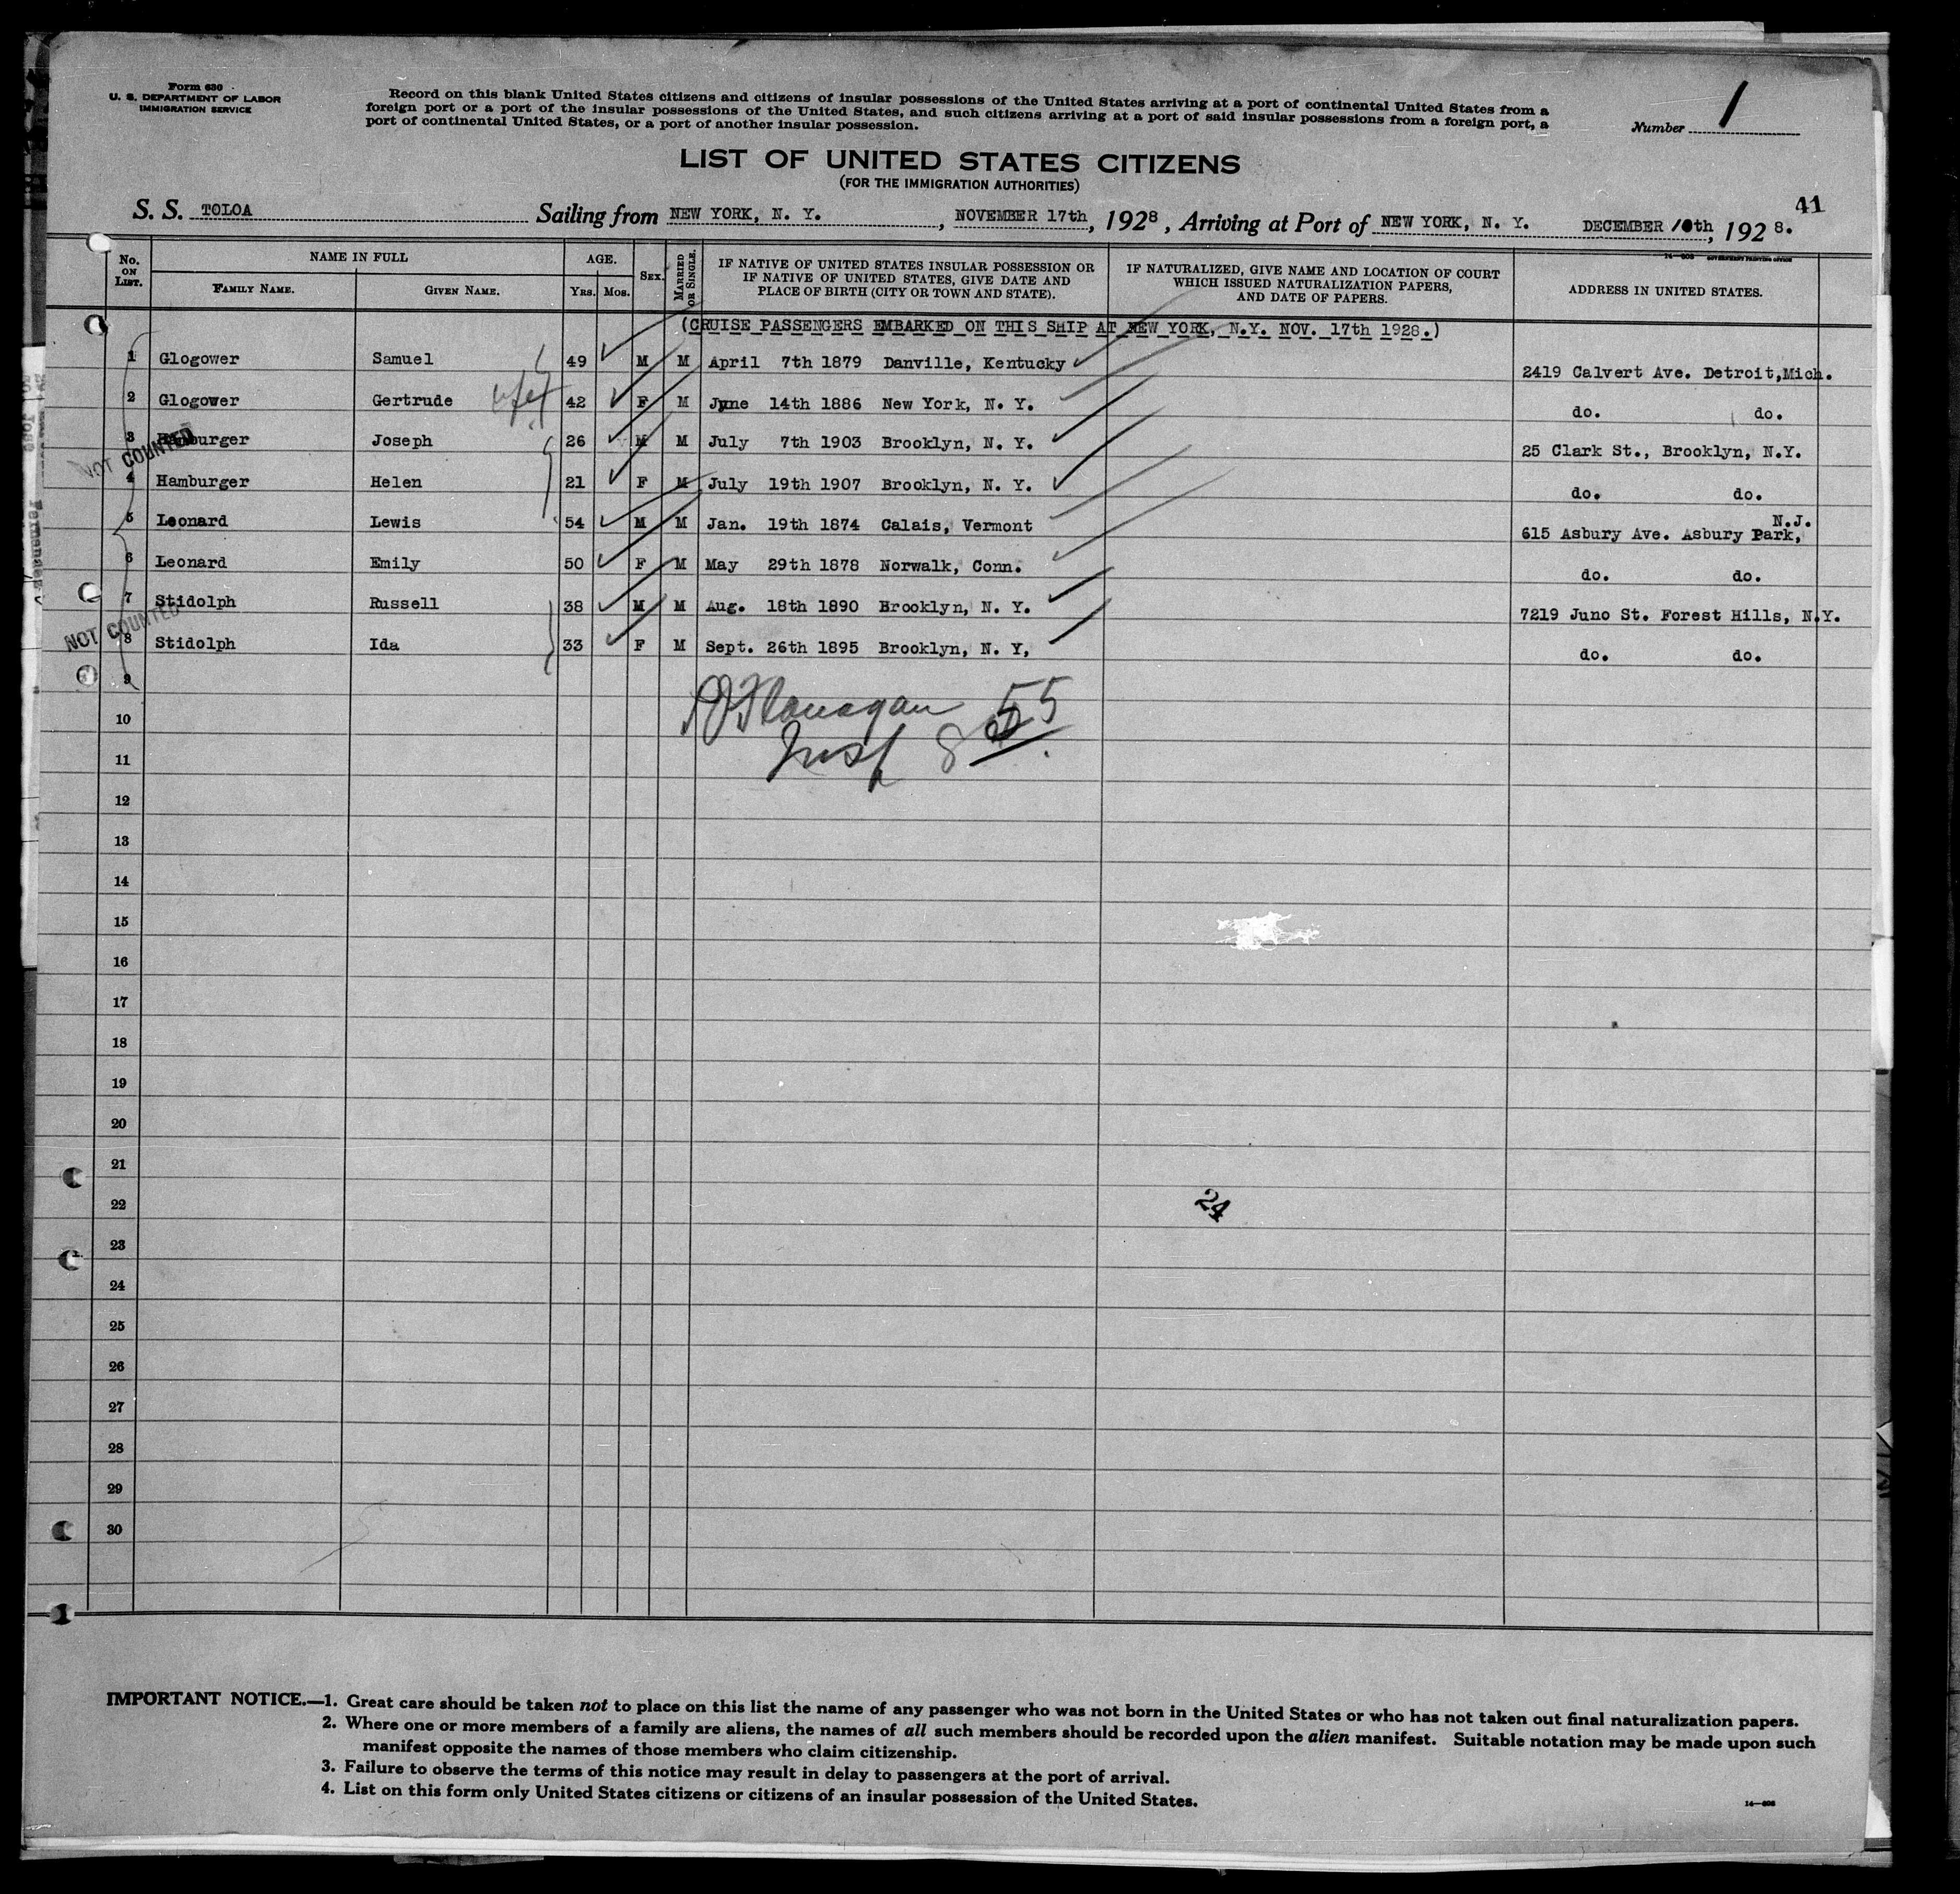 Form 630
U. S. DEPARTMENT OF LABOR
IMMIGRATION SERVICE
Record on this blank United States citizens and citizens of insular possessions of the United States arriving at a port of continental United States from a
foreign port or a port of the insular possessions of the United States, and such citizens arriving at a port of said insular possessions from a foreign port, a
port of continental United States, or a port of another insular possession.
Number 1
LIST OF UNITED STATES CITIZENS
(FOR THE IMMIGRATION AUTHORITIES)
41
S. S. TOLOA Sailing from NEW YORK, N. Y. , NOVEMBER 17th, 1928, Arriving at Port of NEW YORK, N. Y. DECEMBER 10th, 1928.
14-808 GOVERNMENT PRINTING OFFICE
No. ON LIST. NAME IN FULL FAMILY NAME. GIVEN NAME. AGE. YRS. MOS. SEX. MARRIED OR SINGLE. IF NATIVE OF UNITED STATES INSULAR POSSESSION OR IF NATIVE OF UNITED STATES, GIVE DATE AND PLACE OF BIRTH (CITY OR TOWN AND STATE). IF NATURALIZED, GIVE NAME AND LOCATION OF COURT WHICH ISSUED NATURALIZATION PAPERS, AND DATE OF PAPERS. ADDRESS IN UNITED STATES.
(CRUISE PASSENGERS EMBARKED ON THIS SHIP AT NEW YORK, N.Y. NOV. 17th 1928.)
1 Glogower Samuel 49 M M April 7th 1879 Danville, Kentucky 2419 Calvert Ave. Detroit,Mich.
2 Glogower Gertrude 42 F M June 14th 1886 New York, N. Y. do. do.
3 Hamburger Joseph 26 M M July 7th 1903 Brooklyn, N. Y. 25 Clark St., Brooklyn, N.Y.
NOT COUNTED
4 Hamburger Helen 21 F M July 19th 1907 Brooklyn, N. Y. do. do.
5 Leonard Lewis 54 M M Jan. 19th 1874 Calais, Vermont 615 Asbury Ave. Asbury Park, N.J.
6 Leonard Emily 50 F M May 29th 1878 Norwalk, Conn. do. do.
7 Stidolph Russell 38 M M Aug. 18th 1890 Brooklyn, N. Y. 7219 Juno St. Forest Hills, N.Y.
NOT COUNTED
8 Stidolph Ida 33 F M Sept. 26th 1895 Brooklyn, N. Y, do. do.
9
Flanagan 55
10
Insp 8
11
12
13
14
15
16
17
18
19
20
21
22
24
23
24
25
26
27
28
29
30
IMPORTANT NOTICE.—1. Great care should be taken not to place on this list the name of any passenger who was not born in the United States or who has not taken out final naturalization papers.
2. Where one or more members of a family are aliens, the names of all such members should be recorded upon the alien manifest. Suitable notation may be made upon such
manifest opposite the names of those members who claim citizenship.
3. Failure to observe the terms of this notice may result in delay to passengers at the port of arrival.
4. List on this form only United States citizens or citizens of an insular possession of the United States.
14—808